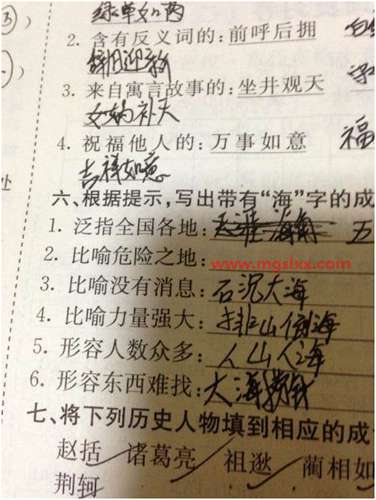 ③ 绿草如
2. 含有反义词的：前呼后拥
一） 辞旧迎新
3. 来自寓言故事的：坐井观天
女娲补天
4. 祝福他人的：万事如意 福
处 吉祥如意
六、根据提示，写出带有“海”字的成
1. 泛指全国各地：天涯海角 五
2. 比喻危险之地：
www.mgslxx.com
3. 比喻没有消息：石沉大海
4. 比喻力量强大：排山倒海
5. 形容人数众多：人山人海
6. 形容东西难找：大海捞针
七、将下列历史人物填到相应的成
赵括 诸葛亮 祖逖 蔺相如
荆轲